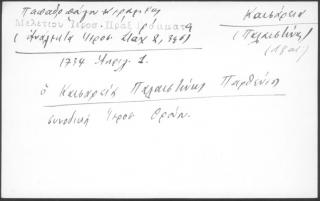 Παπαδοπούλου Κεραμέως
Μελετίου Ἱεροσ. Πράξ
(Ἀνάλεκτα Ἱεροσ Σταχ 2,
Καισάρεια
(Παλαιστίνης)
(18 αι)
1734 Ἀπριλ. 1.
ὁ Καισαρείας Παλαιστίνης Παρθένιος
συνοδικὴ Ἱεροσ Θρόν.